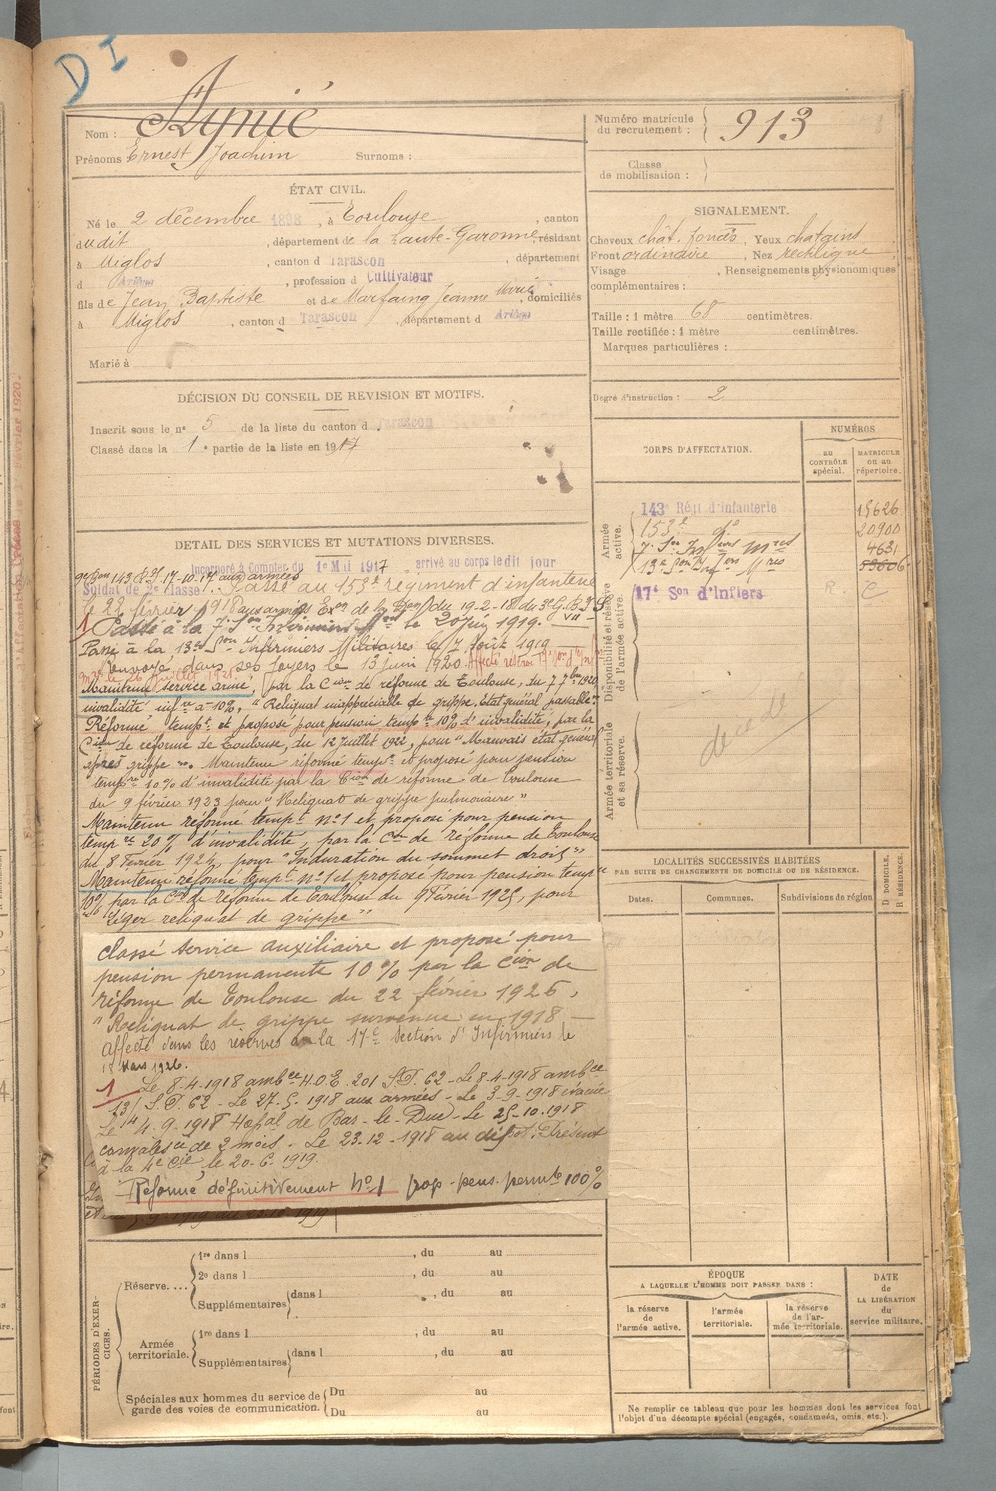 D I
Nom : Aynié
Prénoms Ernest Joachim Surnoms :
Numéro matricule du recrutement : 913
Classe de mobilisation :
ÉTAT CIVIL.
Né le 2 décembre 1898, à Toulouse, canton
dudit, département de la Haute-Garonne, résidant
à Miglos, canton d Tarascon, département
d Ariège, profession d Cultivateur
fils de Jean Baptiste et de Marfaing Jeanne Marie, domiciliés
à Miglos, canton d Tarascon, département d Ariège
Marié à
SIGNALEMENT.
Cheveux chât. foncés, Yeux chatains
Front ordinaire, Nez rectiligne
Visage , Renseignements physionomiques
complémentaires :
Taille : 1 mètre 68 centimètres.
Taille rectifiée : 1 mètre centimètres.
Marques particulières :
Degré d'instruction : 2
DÉCISION DU CONSEIL DE REVISION ET MOTIFS.
Inscrit sous le n° 5 de la liste du canton d Tarascon
Classé dans la 1e partie de la liste en 1917
CORPS D'AFFECTATION.
NUMÉROS
AU CONTRÔLE spécial.
MATRICULE ou au répertoire.
Armée active.
143e Régt d'infanterie 15626
153e do 20900
7e Son Infiers Mres 4631
13e Son Infiers Mres
Disponibilité et réserve de l'armée active.
17e Son d'Infiers R C
Armée territoriale et sa réserve.
décédé
DETAIL DES SERVICES ET MUTATIONS DIVERSES.
Incorporé à Compter du 1er Mai 1917 arrivé au corps le dit jour
Soldat de 2e classe. Passé au 153e régiment d'infanterie
le 22 février 1918 aux armées
1 Passé à la 7e Son Infirmiers le 20 juin 1919.
Passé à la 13e Son Infirmiers Militaires le 7 Août 1919
Renvoyé dans ses foyers le 13 juin 1920.
Maintenu service armé, par la Cion de réforme de Toulouse, du 7 7bre 1920
invalidité infre à 10%, "Reliquat inappréciable de grippe, état général passable."
Réformé tempt et proposé pour pension tempre 10% d'invalidité, par la
Cion de réforme de Toulouse, du 12 Juillet 1922, pour "Mauvais état général
après grippe". Maintenu réformé tempt et proposé pour pension
tempre 10% d'invalidité par la Cion de réforme de Toulouse
du 9 février 1923 pour "Reliquat de grippe pulmonaire"
Maintenu réformé tempt n°1 et proposé pour pension
tempre 20% d'invalidité, par la Cion de réforme de Toulouse
du 8 Février 1924, pour "Induration du sommet droit"
Maintenu réformé tempt n°1 et proposé pour pension tempre
10% par la Cion de réforme de Toulouse du 9 Février 1925, pour
"léger reliquat de grippe"
Classé service auxiliaire et proposé pour
pension permanente 10% par la Cion de
réforme de Toulouse du 22 février 1926,
"Reliquat de grippe survenue en 1918
Affecté dans les réserves à la 17e Section d'Infirmiers le
18 Mars 1926.
1 Le 8-4-1918 ambce H.O.E. 201 S.P. 62 - Le 8-4-1918 ambce
13/ S.P. 62 - Le 27-5-1918 aux armées - Le 3-9-1918 évacué
Le 4-9-1918 Hopal de Bar-le-Duc - Le 25-10-1918
convalesce de 2 mois. - Le 23-12-1918 au dépôt. Présent
à la 4e Cie, le 20-6-1919.
Réformé définitivement N°1 prop. pens. permte 100%
LOCALITÉS SUCCESSIVES HABITÉES
PAR SUITE DE CHANGEMENTS DE DOMICILE OU DE RÉSIDENCE.
Dates.
Communes.
Subdivisions de région
D DOMICILE.
R RÉSIDENCE.
PÉRIODES D'EXERCICES.
Réserve....
1re dans l , du au
2e dans l , du au
Supplémentaires dans l , du au
Armée territoriale.
1re dans l , du au
Supplémentaires dans l , du au
Spéciales aux hommes du service de garde des voies de communication.
Du au
Du au
ÉPOQUE
A LAQUELLE L'HOMME DOIT PASSER DANS :
la réserve de l'armée active.
l'armée territoriale.
la réserve de l'armée territoriale.
DATE de LA LIBÉRATION du service militaire.
Ne remplir ce tableau que pour les hommes dont les services font
l'objet d'un décompte spécial (engagés, condamnés, omis, etc.).